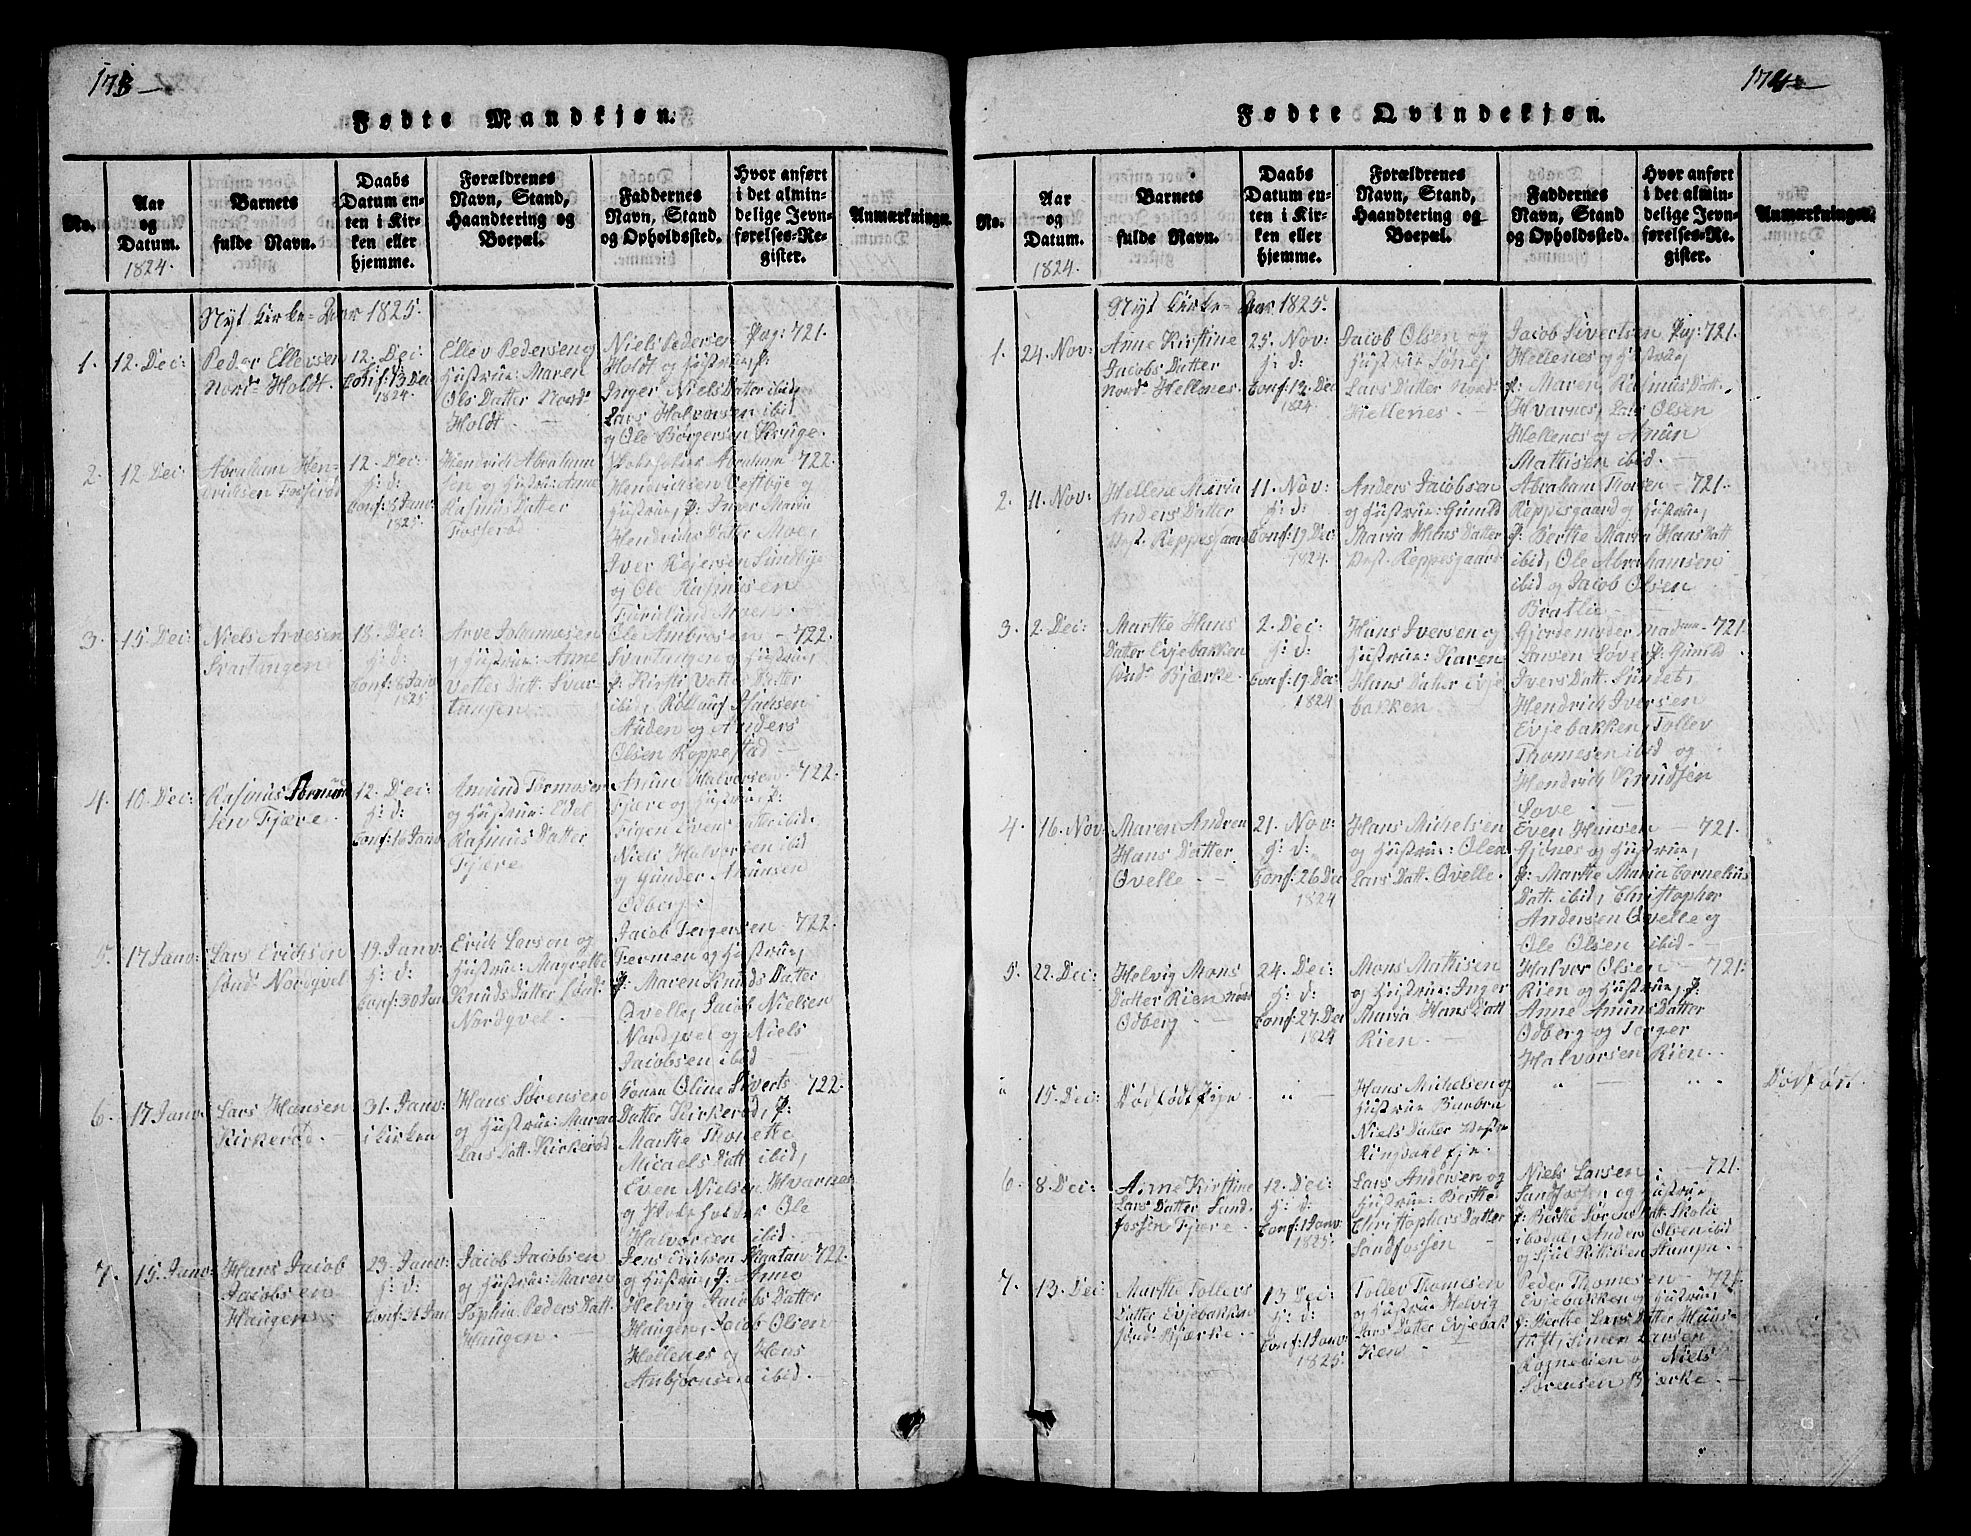 173
Fødte Mandkjøn.
No.
Aar og Datum.
1824.
Barnets fulde Navn.
Daabs Datum enten i Kirken eller hjemme.
Forældrenes Navn, Stand, Haandtering og Boepæl.
Faddernes Navn, Stand og Opholdssted.
Hvor anført i det almindelige Jevnførelses-Register.
Anmærkninger.
Nyt Kirke-Aar 1825.
1. 12. Dec:
Peder Ellevsen
Nord. Holdt.
12. Dec:
Conf: 13 Dec
1824.
Ellev Pedersen og
Hustrue: Maren
Ols Datter Nord.
Holdt.
Niels Pedersen
Holdt og Hustrue, p:
Inger Niels Datter ibid
Lars Halvorsen ibid
og Ole Børgersen Kruge.
Pag: 721.
2. 12 Dec:
Abraham Hen-
dricksen Fosserød
12. Dec:
H: D:
Conf: 8 Janv:
1825.
Hendrich Abraham
sen og Hustrue: Anne
Rasmus Datter
Fosserød
Abraham
Hendrichsen Vestbye og
Hustrue, p: Inger Maria
Hendrichs Datter Moe,
Iver Rejersen Sundbye
og Ole Rasmusen
Furulund Moen.
722.
3. 15. Dec:
Niels Arvesen
Svartangen
18. Dec:
H: D:
Conf: 8 Janv
1825
Arve Johannesen
og Hustrue: Anne
Vettes Datt. Svar-
tangen.
Ole Ambrosen
Svartangen og Hustrue,
p: Kirsti Vettes Datter
ibid, Rollauf Isachsen
Auden og Anders
Olsen Roppestad
722.
4. 10. Dec:
Rasmus
sen Fjære.
12. Dec:
H: D:
Conf: 16 Janv
Amund Tormosen
og Hustrue: Edel
Rasmus Datter
Fjære
Amun Halvorsen
Fjære og Hustrue, p:
Pigen Evens Datter ibid.
Niels Halvorsen ibid
og Gunder Amunsen
Odberg
722.
5. 17 Janv:
Lars Erichsen
sønd. Nordqvel
19. Janv:
H: D:
Conf: 30 Jan
Erich Larsen og
Hustrue: Magrethe
Knuds Datter sønd.
Nordqvel.
Jacob Tergersen
Fermen og Hustrue,
p: Maren Knuds Datter
Qvelle, Jacob Nielsen
Nordqvel og Niels
Jacobsen ibid
722.
6. 17 Janv:
Lars Hansen
Kirkerød.
31. Janv:
i Kirken
Hans Sørensen
og Hustrue: Maren
Lars Datt. Kirkerød
Konen Oline Siverts
Datter Kirkerød, p:
Marthe Thonette
Micaels Datt ibid,
Even Nielsen Hvarnes
og Ole
Halvorsen ibid.
722.
7. 15. Janv:
Hans Jacob
Jacobsen
Haugen
23. Janv:
H: D:
Conf: 31 Jan
Jacob Jacobsen
og Hustrue: Maren
Sophia Peders Datt.
Haugen.
Jens Erichsen
og Hustrue, p: Anne
Helvig Jacobs Datter
Haugen, Jacob Olsen
Hellenes og Hans
Anbjønsen ibid.
722.
174
Fødte Qvindekjøn.
No.
Aar og Datum.
1824.
Barnets fulde Navn.
Daabs Datum enten i Kirken eller hjemme.
Forældrenes Navn, Stand, Haandtering og Boepæl.
Faddernes Navn, Stand og Opholdssted.
Hvor anført i det almindelige Jevnførelses-Register.
Anmærkninger.
Nyt Kirke-Aar 1825.
1. 24. Nov:
Anne Kirstine
Jacobs Datter
Nord. Hellenes
25. Nov:
H: D:
Conf: 12. Dec
1824.
Jacob Olsen og
Hustrue Sønej
Lars Datter Nord.
Hellenes.
Jacob Sivertsen
Hellenes og Hustrue,
p: Maren Rasmus Datt.
Hvarnes, Lars Olsen
Hellenes og Amun
Mathisen ibid.
Pag: 721.
2. 11. Nov:
Hellene Maria
Anders Datter
Vest. Reppesgaard
11. Nov:
H: D:
Conf: 19. Dec
1824.
Anders Jacobsen
og Hustrue: Gunild
Maria Hans Datter
Vest. Reppesgaard
Abraham Thorsen
Reppesgaard og Hustrue,
p: Berthe Maria Hans Datt
ibid, Ole Abrahamsen
ibid og Jacob Olsen
Bratlie
721.
3. 2. Dec:
Marthe Hans
Datter Evjebakken
sønd. Bjærke.
2. Dec:
H: D:
Conf: 19. Dec
1824
Hans Iversen og
Hustrue: Karen
Hans Datter Evje
bakken
Gjordemoder Madme
Larsen Løve p: Gunild
Ivers Datt. Sundet,
Hendrich Iversen
Evjebakken, Tollev
Thomesen ibid og
Hendrich Knudsen
Løve.
721.
4. 16. Nov:
Maren Andrea
Hans Datter
Qvelle
21. Nov:
H: D:
Conf: 26 Dec
1824
Hans Michelsen
og Hustrue: Olea
Lars Datt. Qvelle.
Even Hansen
Gjønes og Hustrue,
p: Marthe Maria Cornelius
Datt. ibid, Christopher
Andersen Qvelle og
Ole Olsen ibid.
721.
5. 22. Dec:
Helvig Mons
Datter Rien nord
Odberg
24. Dec:
H: D:
Conf: 27. Dec
1824
Mons Mathisen
og Hustrue: Inger
Maria Hans Datt
Rien.
Halvor Olsen
Rien og Hustrue, p:
Anne Amuns Datter
Odberg og Terger
Halvorsen Rien.
721.
" 15. Dec:
Dødfødt Pige
"
Hans Michelsen og
Hustrue Barbra
Niels Datter Vestre
Ringdahl Eje.
" "
Dødfød.
6. 8. Dec:
Anne Kirstine
Lars Datter Sand
fossen Fjære.
12. Dec:
H: D:
Conf: 1 Janv:
1825.
Lars Andersen og
Hustrue: Berthe
Christophers Datter
Sandfossen
Niels Larsen
Sandfossen og Hustrue
p: Berthe Sørens Datt. Skolie
ibodne, Anders Olsen ibid
og Sjul
721.
7. 13. Dec:
Marthe Tollevs
Datter Evjebakken
sønd. Bjærke.
13 Dec:
H: D:
Conf: 1 Janv:
1825.
Tollev Thomesen
og Hustrue Helvig
Lars Datter Evjebak
ken
Peder Thomesen
Evjebakken og Hustrue,
p: Berthe Lars Datter Huus-
tuft, Simen Larsen
og Niels
Sørensen Bjærke.
721.